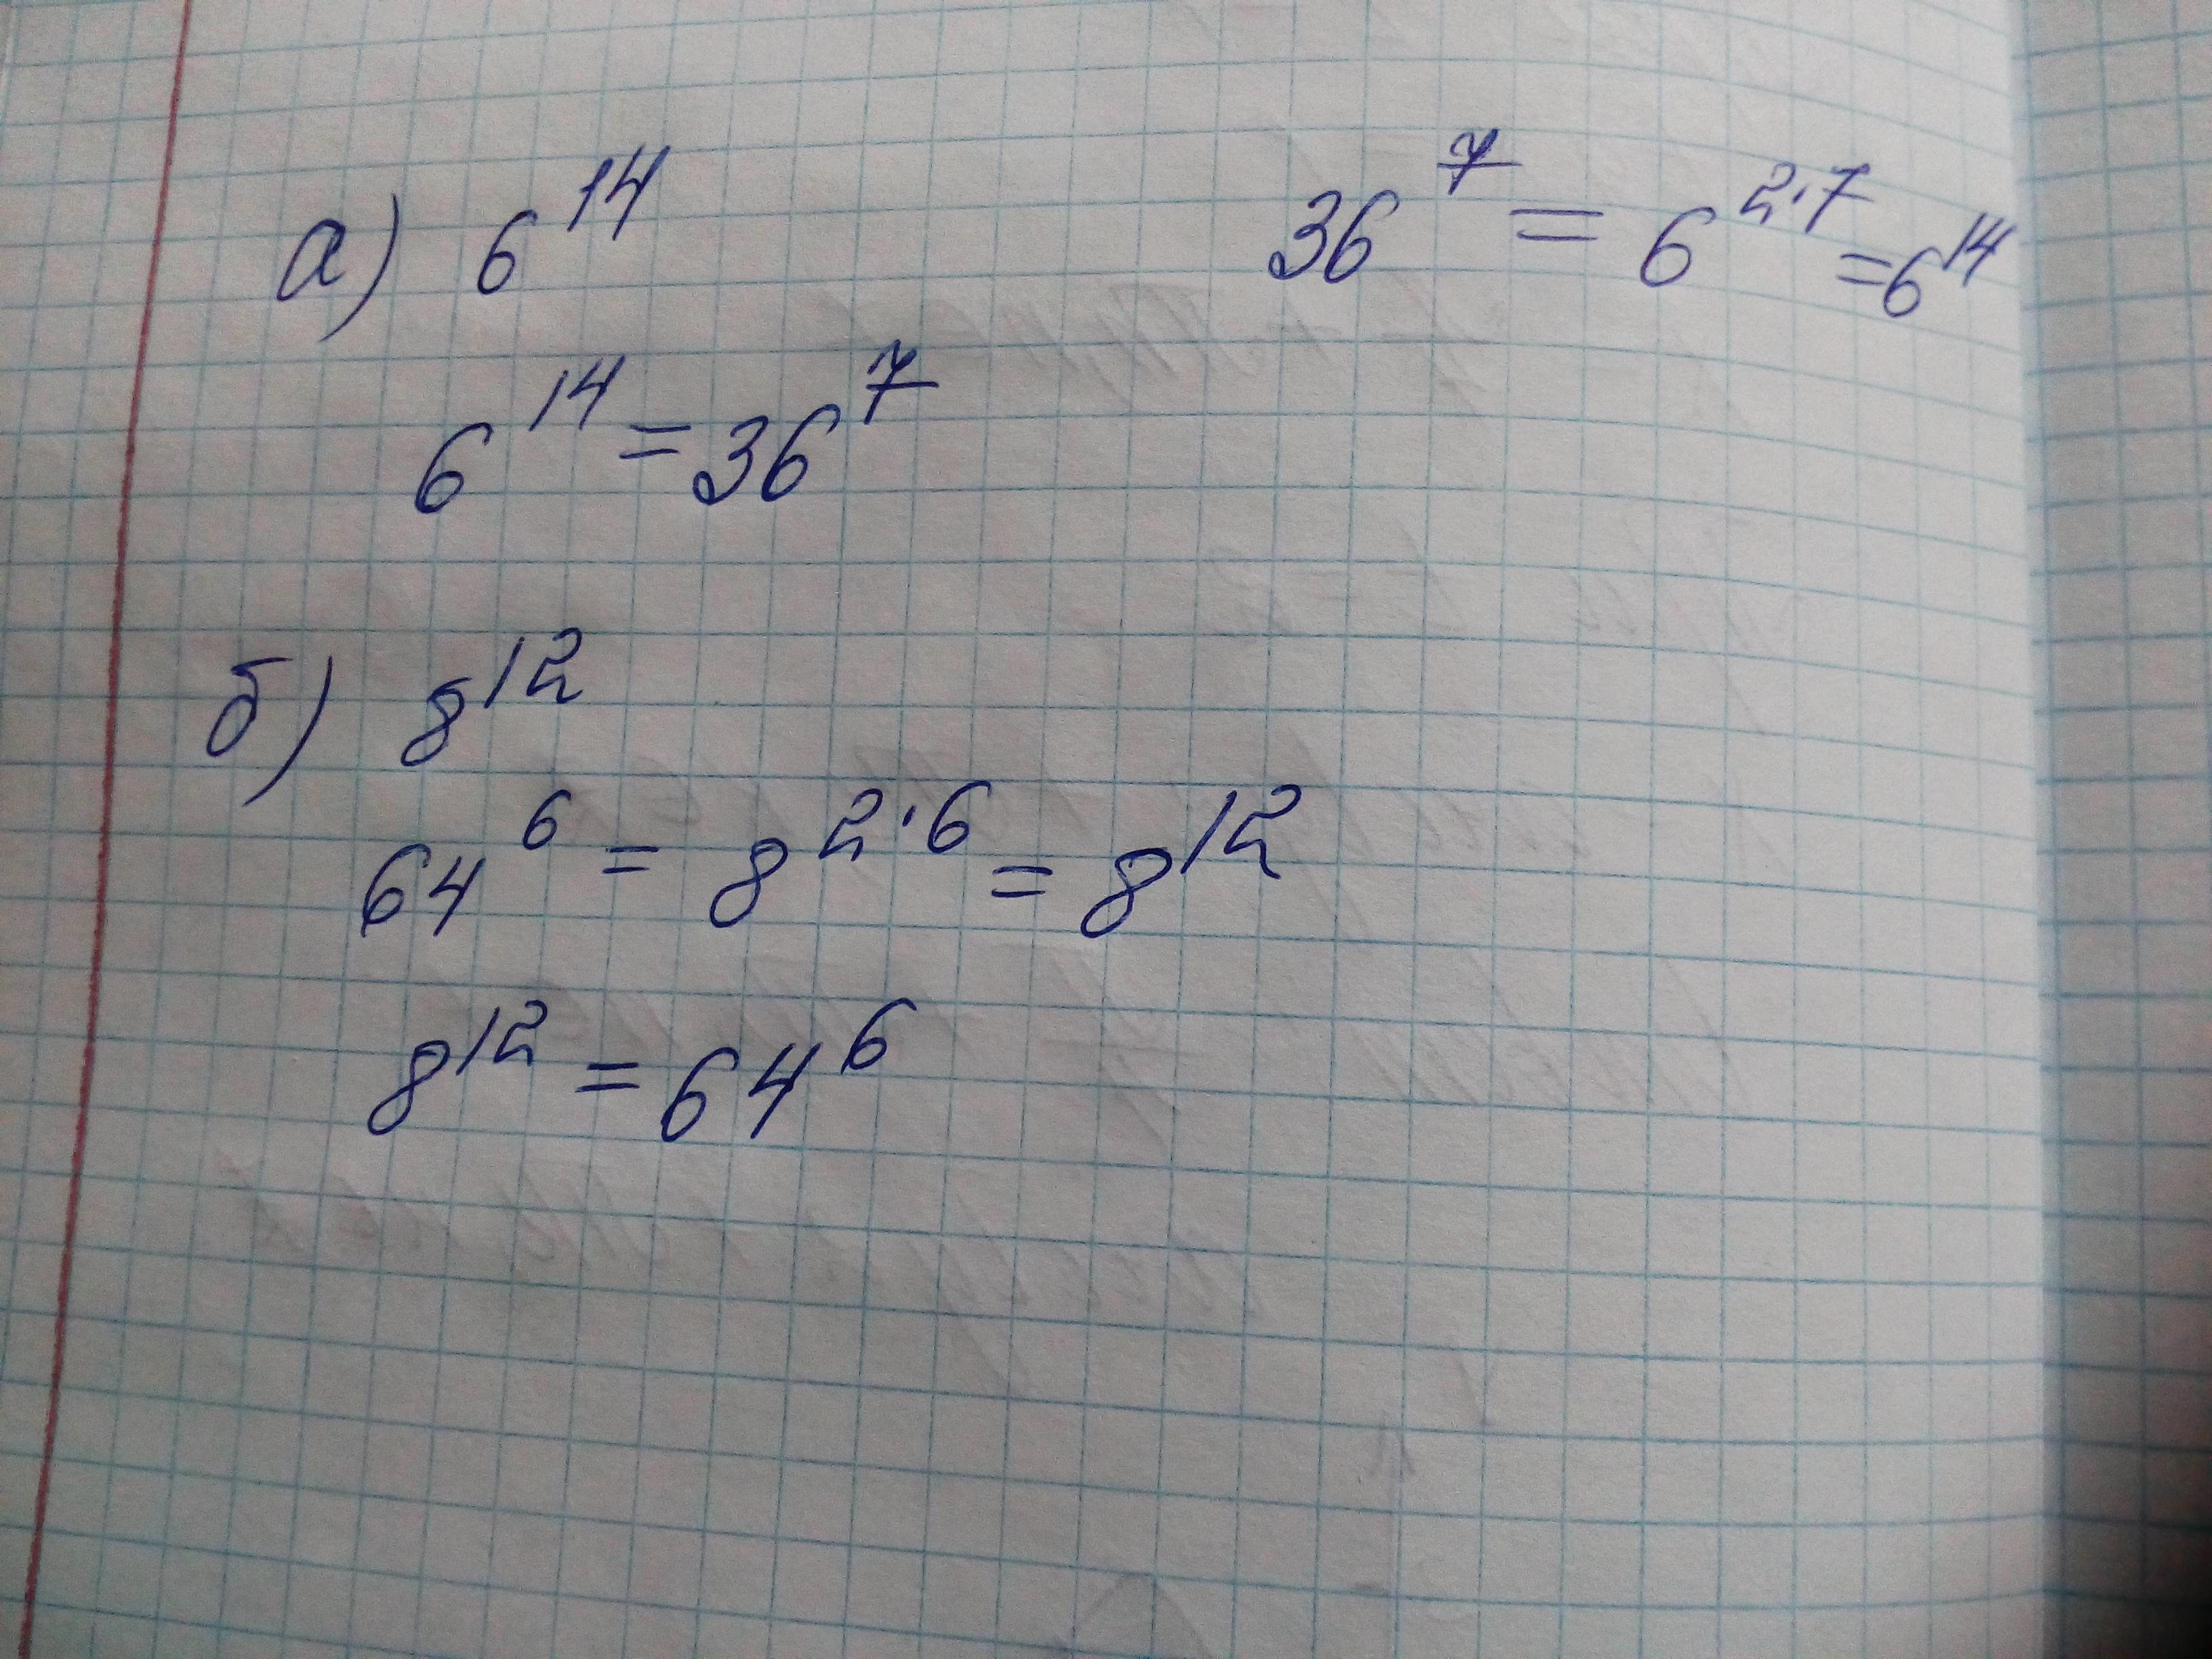 а) 6^14 36^7 = 6^2·7 = 6^14
6^14 = 36^7
б) 8^12
64^6 = 8^2·6 = 8^12
8^12 = 64^6